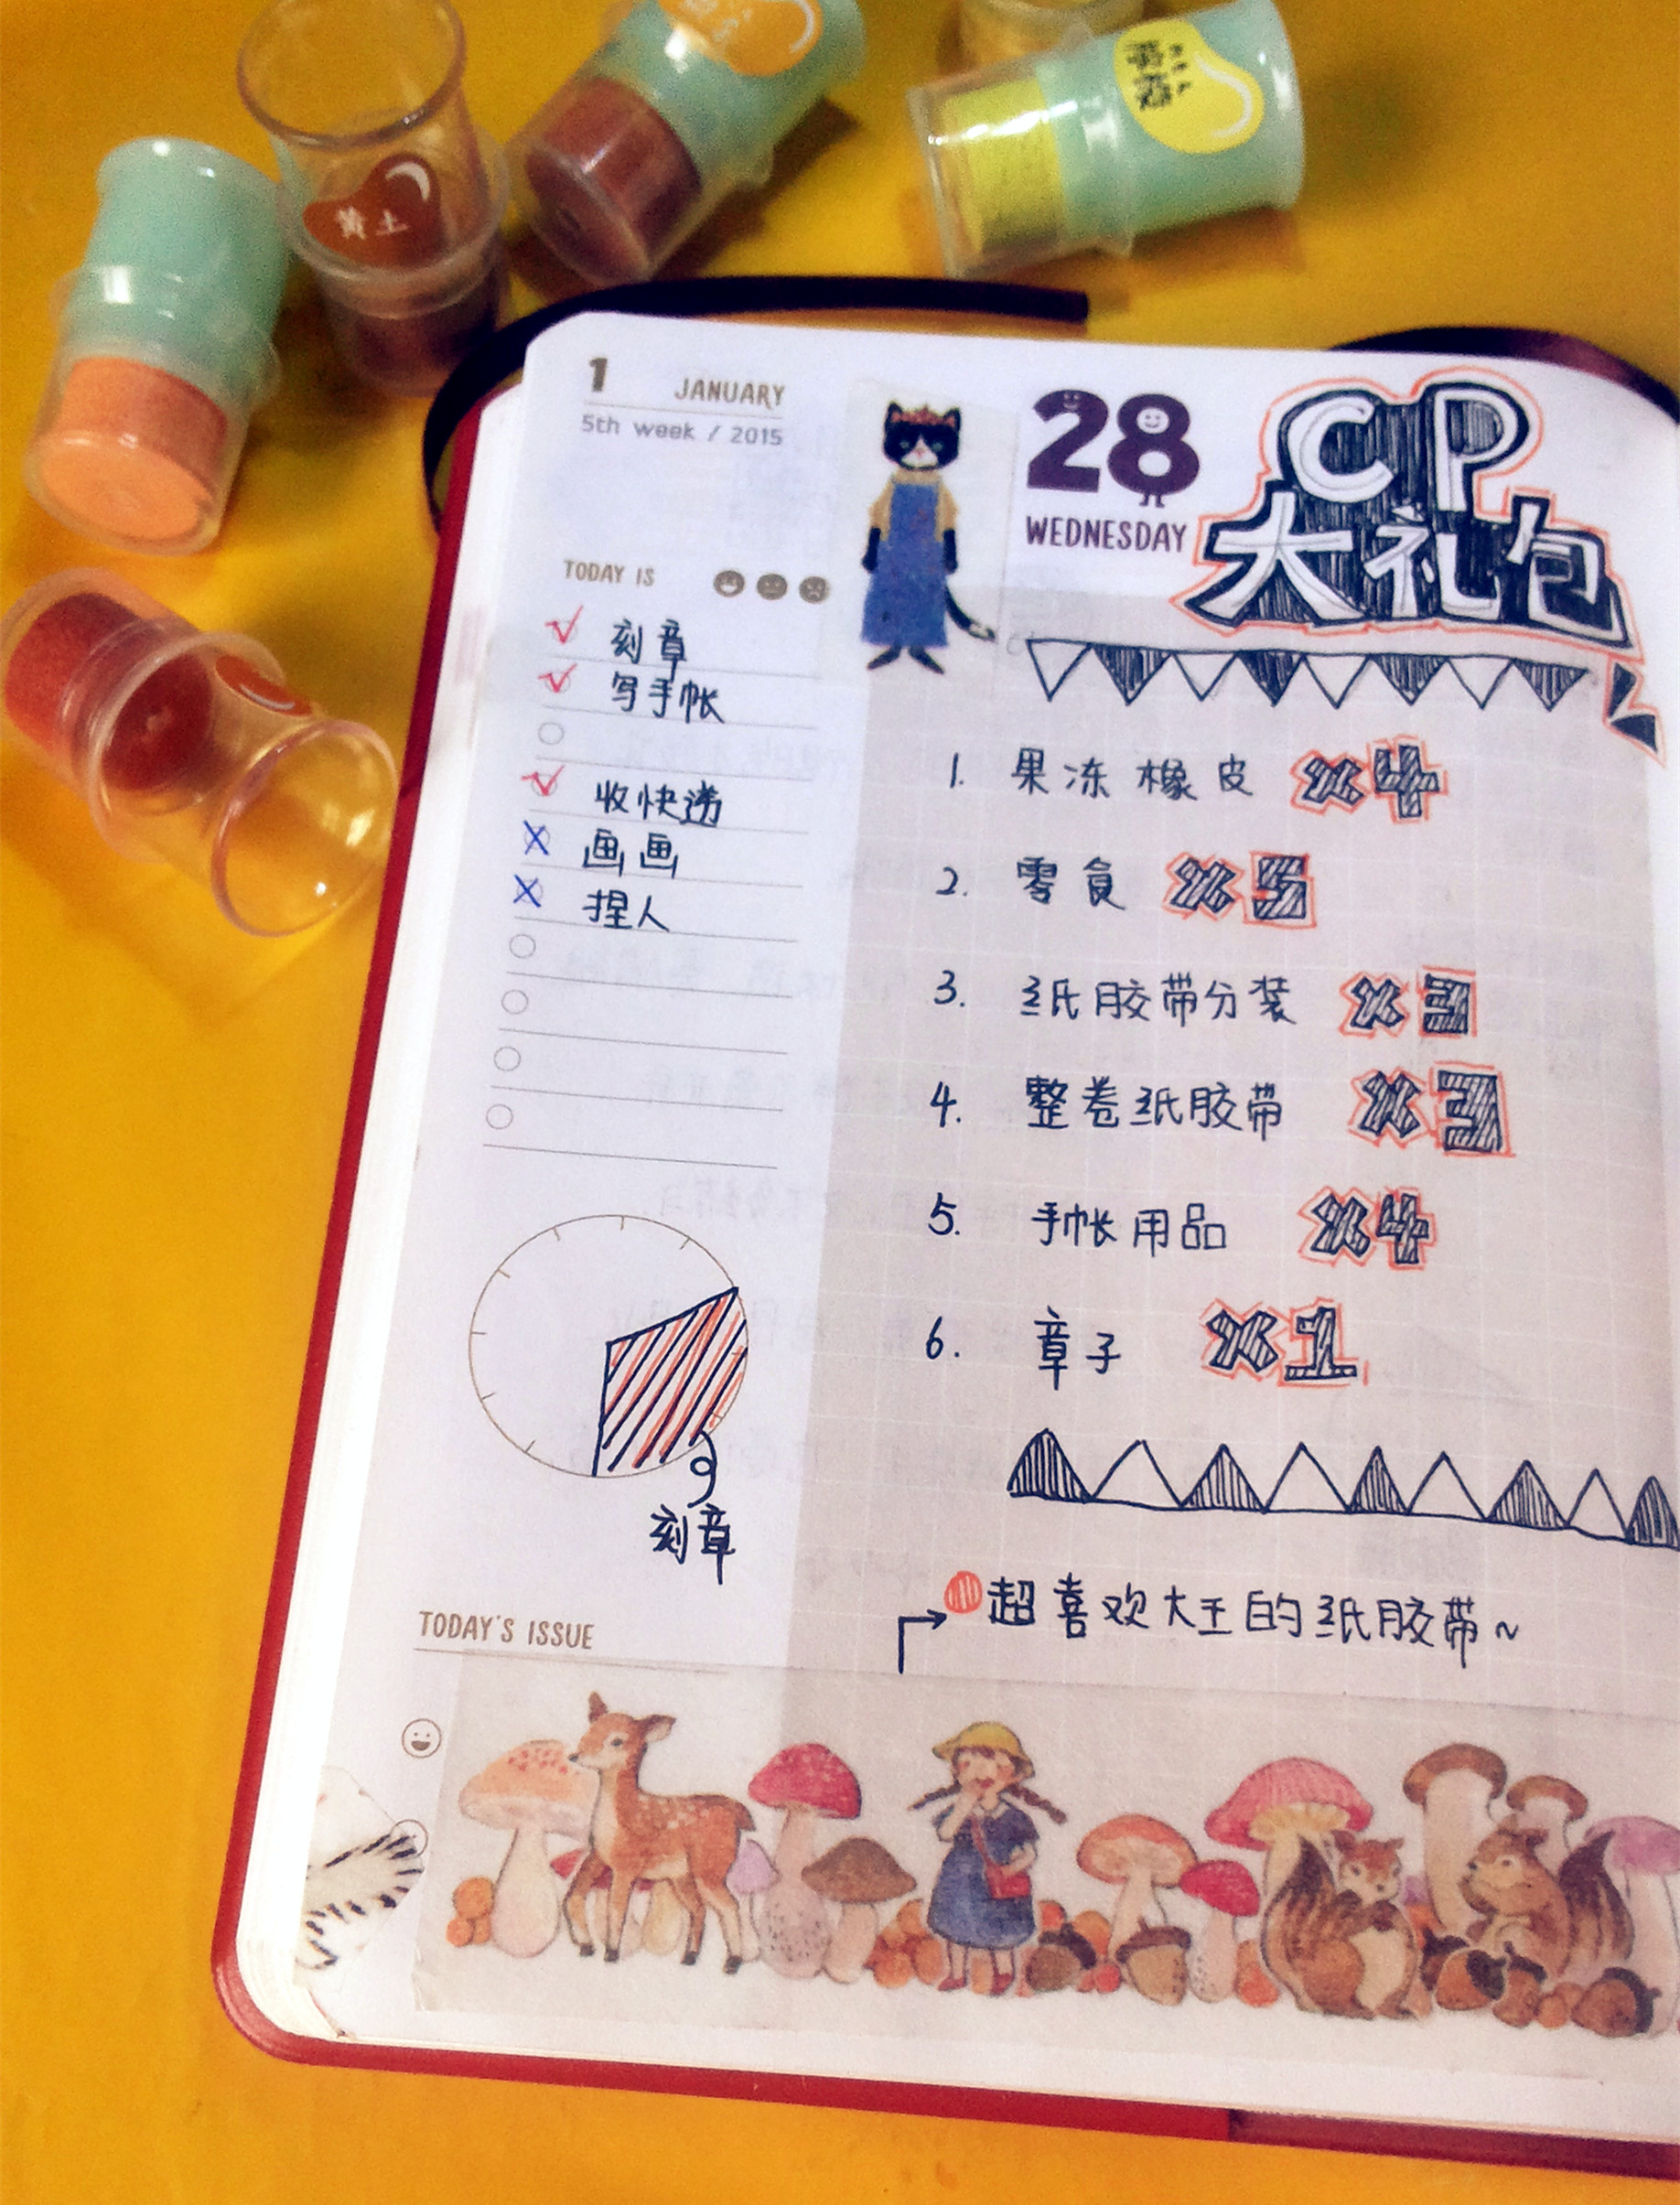 黄土
1 JANUARY
5th week / 2015
28
WEDNESDAY
CP
大礼包
TODAY IS
刻章
写手帐
收快递
画画
捏人
1. 果冻橡皮 x4
2. 零食 x5
3. 纸胶带分装 x3
4. 整卷纸胶带 x3
5. 手帐用品 x4
6. 章子 x1
刻章
超喜欢大王的纸胶带~
TODAY'S ISSUE